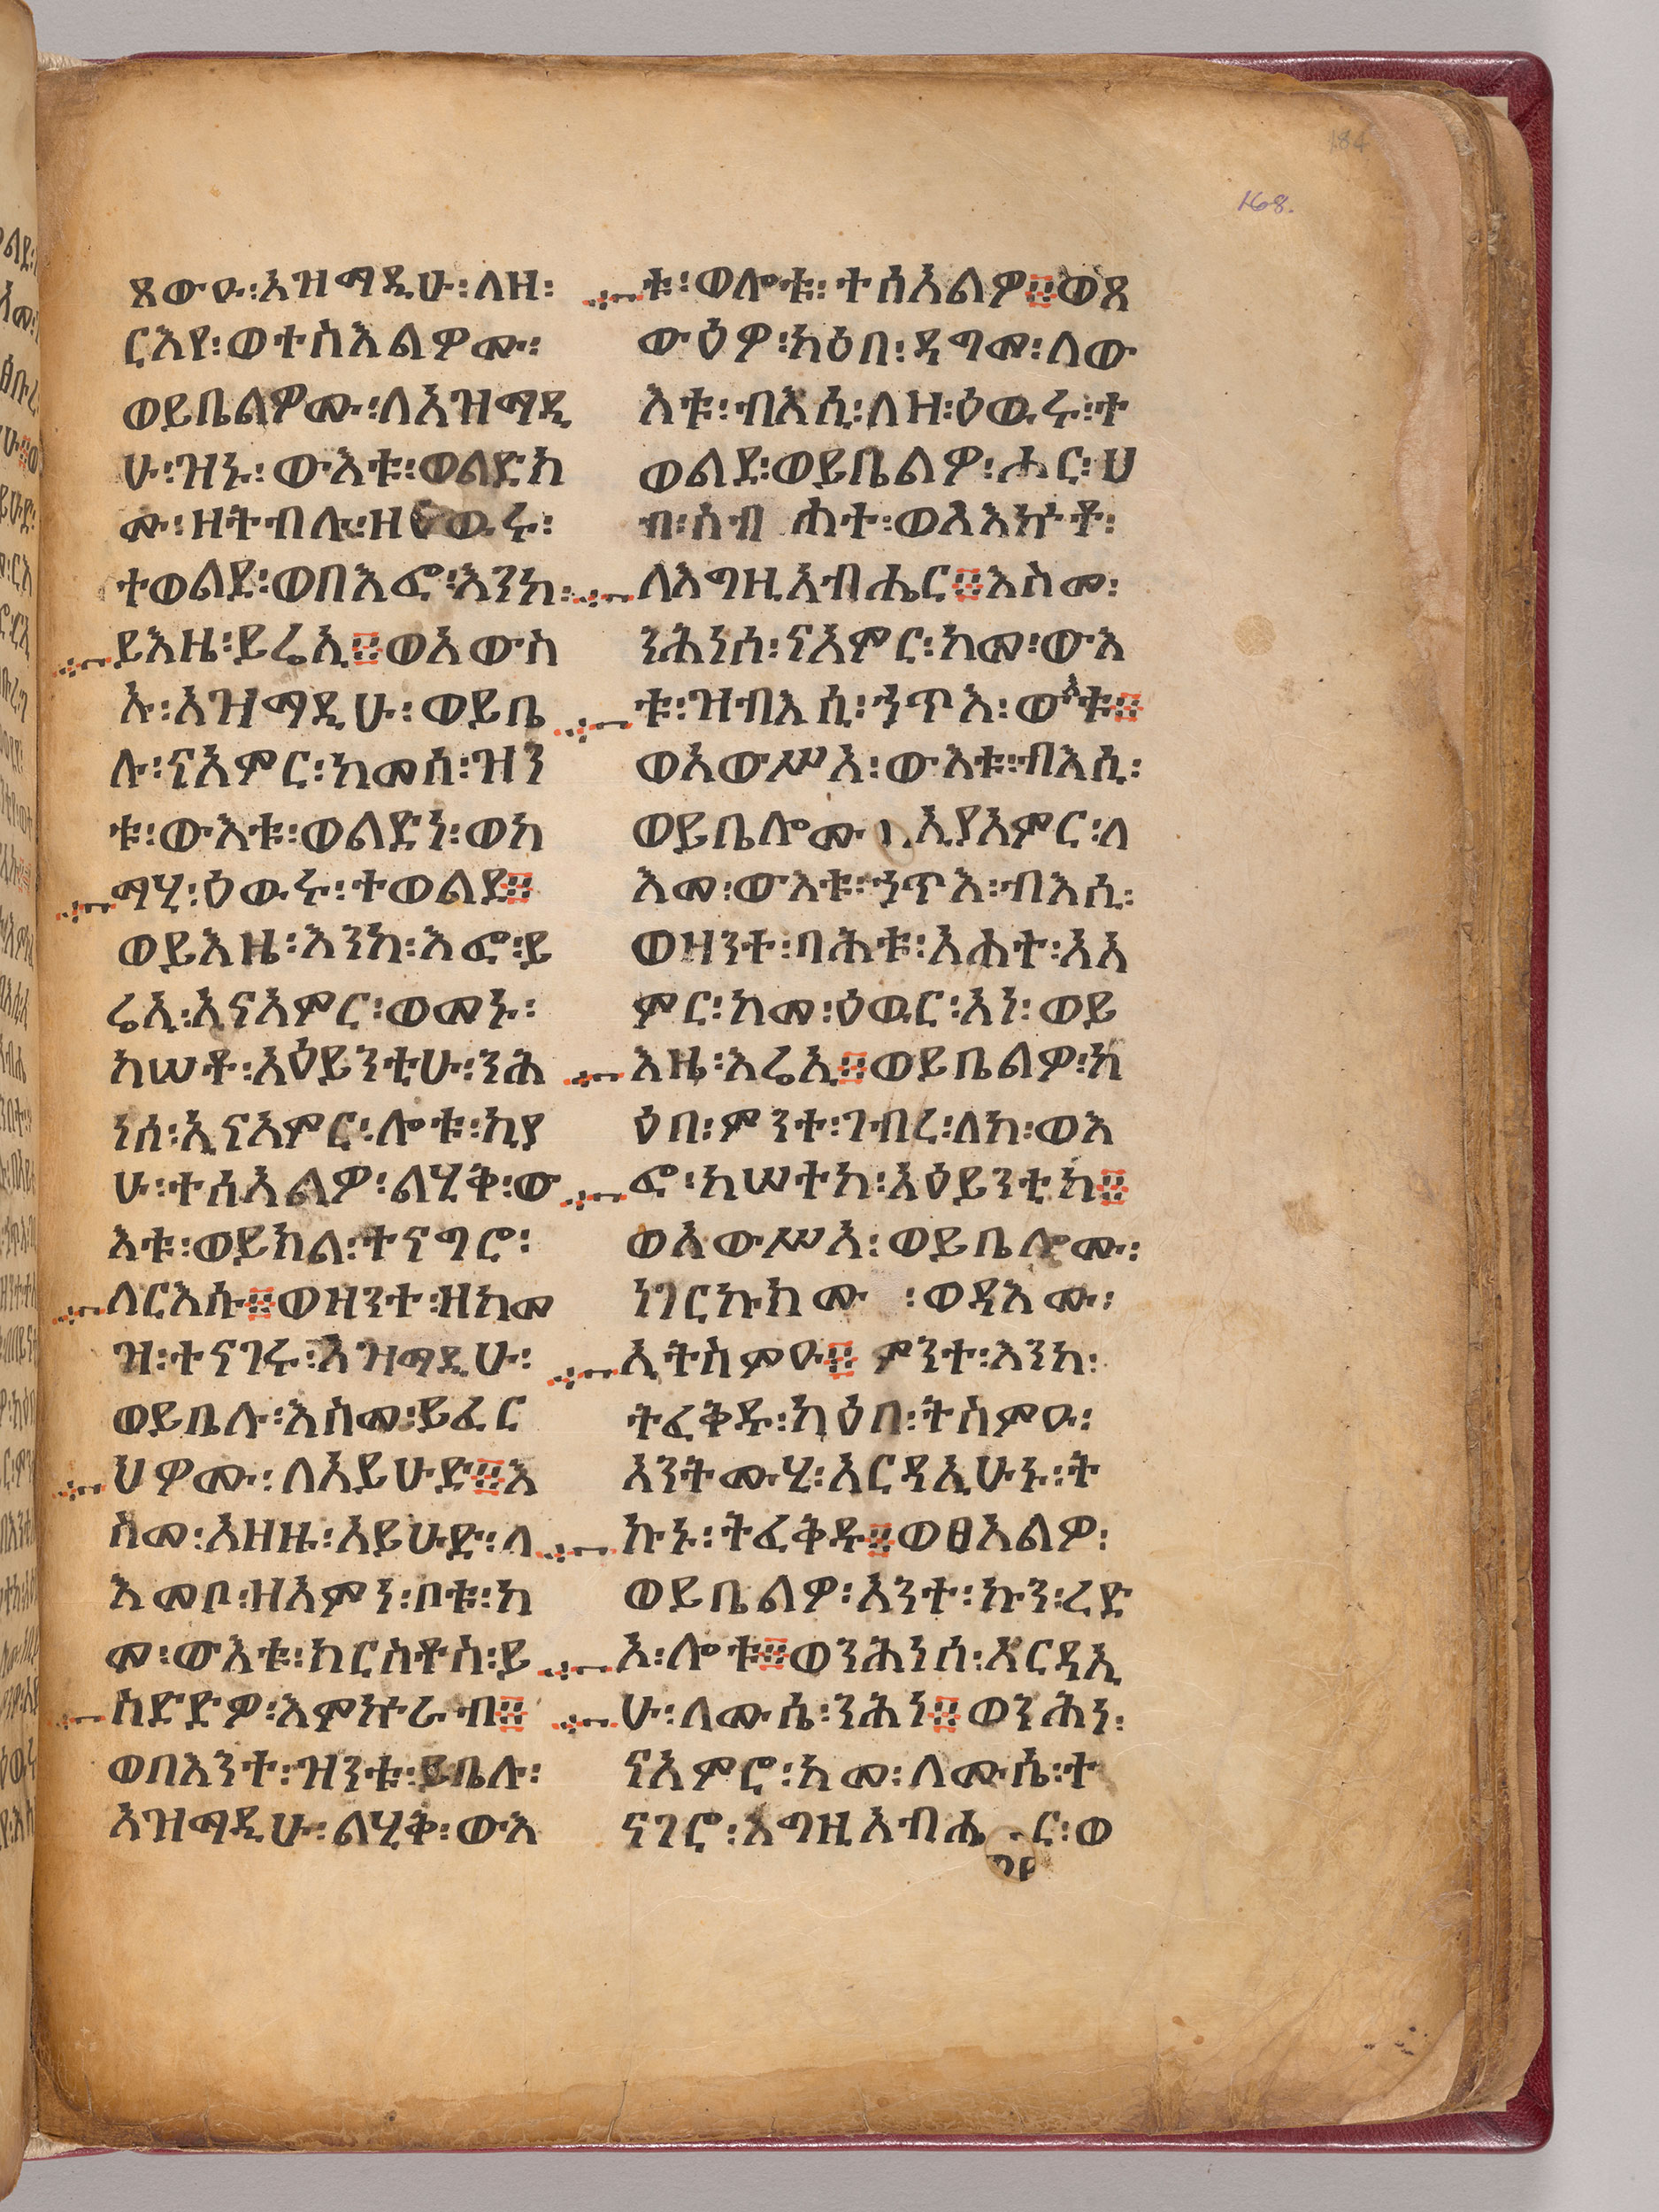 184
168.
ጸውዑ፡አዝማዲሁ፡ለዘ፡
ርእየ፡ወተስእልዎሙ፡
ወይቤልዎሙ፡ለአዝማዲ
ሁ፡ዝኑ፡ውእቱ፡ወልድክ
ሙ፡ዘትብሉ፡ዘዕዉሩ፡
ተወልደ፡ወበእፎ፡እንከ፡
ይእዜ፡ይሬኢ፨ወአውስ
ኡ፡አዝማዲሁ፡ወይቤ
ሉ፡ናአምር፡ከመሰ፡ዝን
ቱ፡ውእቱ፡ወልድነ፡ወከ
ማሂ፡ዕዉሩ፡ተወልደ፨
ወይእዜ፡እንከ፡እፎ፡ይ
ሬኢ፡ኢናአምር፡ወመኑ፡
ከሠቶ፡አዕይንቲሁ፡ንሕ
ነሰ፡ኢናአምር፡ሎቱ፡ኪያ
ሁ፡ተሰአልዎ፡ልሂቅ፡ው
እቱ፡ወይክል፡ተናግሮ፡
ለርእሱ፨ወዘንተ፡ዘከመ
ዝ፡ተናገሩ፡አዝማዲሁ፡
ወይቤሉ፡እስመ፡ይፈር
ህዎሙ፡ለአይሁድ፨እ
ስመ፡አዘዙ፡አይሁድ፡ለ
እመቦ፡ዘአምነ፡ቦቱ፡ከ
መ፡ውእቱ፡ክርስቶስ፡ይ
ስድድዎ፡እምኵራብ፨
ወበእንተ፡ዝንቱ፡ይቤሉ፡
አዝማዲሁ፡ልሂቅ፡ውእ
ቱ፡ወሎቱ፡ተሰአልዎ፨ወጸ
ውዕዎ፡ካዕበ፡ዳግመ፡ለው
እቱ፡ብእሲ፡ለዘ፡ዕዉሩ፡ተ
ወልደ፡ወይቤልዎ፡ሑር፡ሀ
ብ፡ስብሐተ፡ወአእኵቶ፡
ለእግዚአብሔር፨እስመ፡
ንሕነሰ፡ናአምር፡ከመ፡ውእ
ቱ፡ዝብእሲ፡ኃጥእ፡ውእቱ፨
ወአውሥአ፡ውእቱ፡ብእሲ፡
ወይቤሎሙ፡ኢያአምር፡ለ
እመ፡ውእቱ፡ኃጥእ፡ብእሲ፡
ወዘንተ፡ባሕቱ፡አሐተ፡አአ
ምር፡ከመ፡ዕዉር፡አነ፡ወይ
እዜ፡እሬኢ፨ወይቤልዎ፡ካ
ዕበ፡ምንተ፡ገብረ፡ለከ፡ወእ
ፎ፡ከሠተከ፡አዕይንቲከ፨
ወአውሥአ፡ወይቤሎሙ፡
ነገርኩክሙ፡ወዳእሙ፡
ኢትስምዑ፨ምንተ፡እንከ፡
ትፈቅዱ፡ካዕበ፡ትስምዑ፡
አንትሙሂ፡አርዳኢሁኑ፡ት
ኩኑ፡ትፈቅዱ፨ወፀአልዎ፡
ወይቤልዎ፡አንተ፡ኩን፡ረድ
አ፡ሎቱ፨ወንሕነሰ፡አርዳኢ
ሁ፡ለሙሴ፡ንሕነ፨ወንሕነ፡
ናአምሮ፡ከመ፡ለሙሴ፡ተ
ናገሮ፡እግዚአብሔር፡ወ